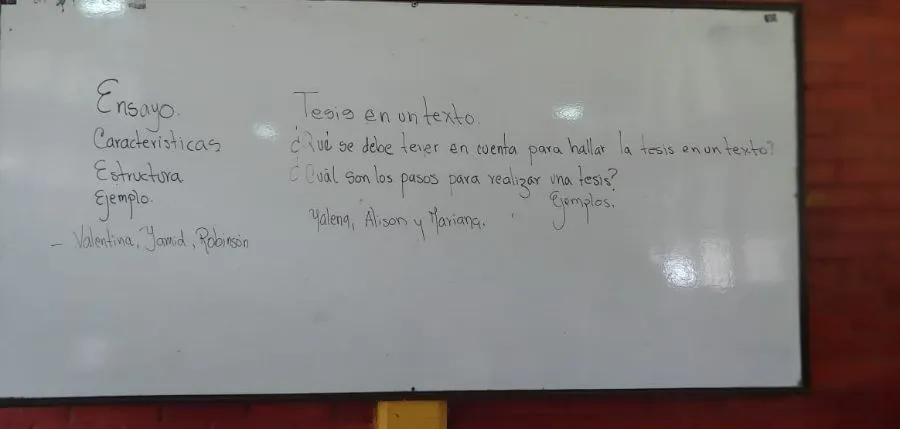 Ensayo.
Características
Estructura
Ejemplo.
- Valentina, Yamid, Robinson
Tesis en un texto.
¿Qué se debe tener en cuenta para hallar la tesis en un texto?
¿Cuál son los pasos para realizar una tesis?
Ejemplos.
Yalena, Alison y Mariana.